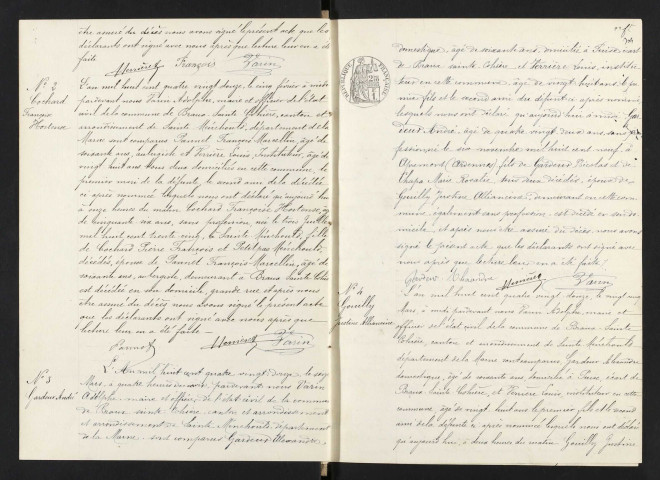 être assuré du décès nous avons signé le présent acte que les
déclarants ont signé avec nous après que lecture leur en a été
faite
François Varin
N° 2
Cochard
Françoise
Hortense
L'an mil huit cent quatre vingt douze, le cinq février à midi
pardevant nous Varin Adolphe, maire et officier de l'état
civil de la commune de Braux Sainte Cohière, canton et
arrondissement de Sainte Menehould, département de la
Marne sont comparus Pannet François Marcellin, âgé de
soixante ans, aubergiste et Ferrière Louis, Instituteur, âgé de
vingt huit ans tous deux domiciliés en cette commune, le
premier mari de la défunte, le second ami de la décédée
ci après nommée, lesquels nous ont déclaré qu'aujourd'hui
à onze heures du matin Cochard Françoise Hortense, âgée
de cinquante six ans, sans profession, née le trois
mil huit cent trente cinq, à Sainte Menehould, fille
de Cochard Pierre François et Petitpas Menehould,
décédés, épouse de Pannet François Marcellin, âgé de
soixante ans, aubergiste, demeurant à Braux Sainte Cohière
est décédée en son domicile, grande rue et après nous
être assuré du décès nous avons signé le présent acte
que les déclarants ont signé avec nous après que
lecture leur en a été faite
Pannet Varin
N° 3
Gardeux André
L'An mil huit cent quatre vingt douze, le
Mars, à quatre heures du soir, pardevant nous Varin
Adolphe, maire et officier de l'état civil de la commune
de Braux Sainte Cohière, canton et arrondissement
et arrondissement de Sainte Menehould, département
de la Marne, sont comparus Gardeux Alexandre,
RÉPUBLIQUE FRANÇAISE
domestique, âgé de soixante ans, domicilié à
de Braux Sainte Cohière et Ferrière Louis, institu
teur en cette commune, âgé de vingt huit ans, le
premier fils et le second ami du défunt ci après nommé,
lesquels nous ont déclaré qu'aujourd'hui à
André, âgé de quatre vingt deux ans, sans
profession, né le six novembre mil huit cent neuf, à
(Ardennes), fils de Gardeux Nicolas et de
Marie Rosalie, tous deux décédés, époux de
Gouilly Justine demeurant en cette com
mune, également sans profession, est décédé en son do
micile, et après nous être assuré du décès, nous avons
signé le présent acte que les déclarants ont signé avec
nous après que lecture leur en a été faite.
Alexandre Varin
N° 4
Gouilly
Justine
L'an mil huit cent quatre vingt douze, le vingt
Mars, à midi pardevant nous Varin Adolphe, maire et
officier de l'état civil de la commune de Braux Sainte
Cohière, canton et arrondissement de Sainte Menehould
département de la Marne sont comparus Gardeux Alexandre
domestique, âgé de soixante ans domicilié à écart de
Braux Sainte Cohière, et Ferrière Louis, instituteur en cette
commune, âgé de vingt huit ans le premier, fils et le second
ami de la défunte ci après nommée lesquels nous ont déclaré
qu'aujourd'hui, à deux heures du matin Gouilly Justine